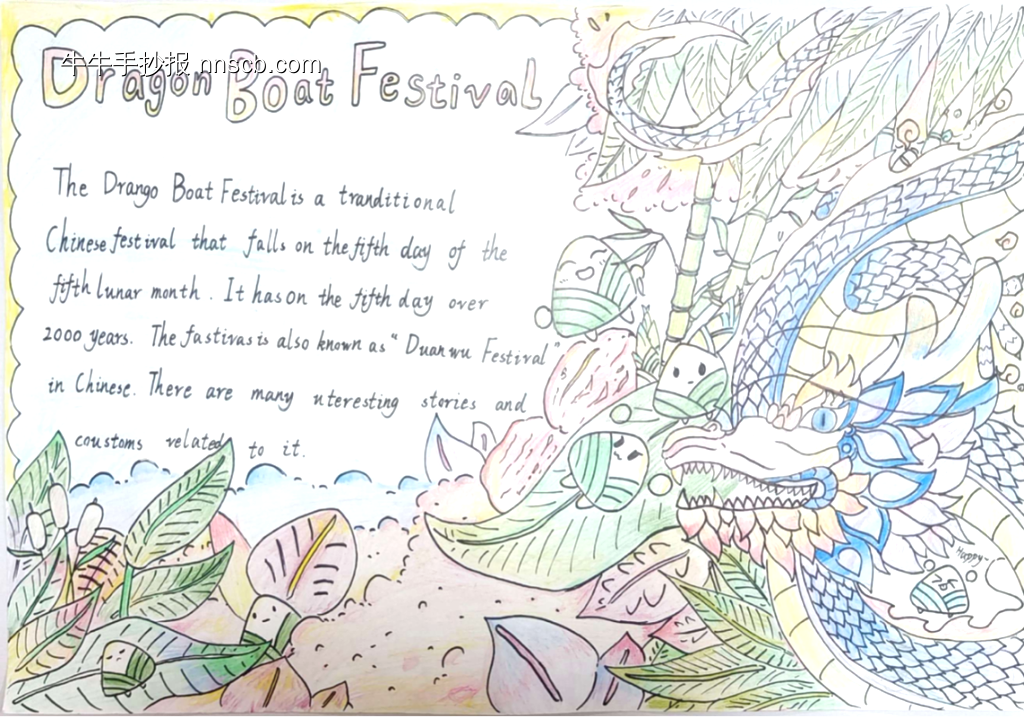 牛牛手抄报 nnscb.com
Dragon Boat Festival
The Drango Boat Festival is a tranditional
Chinese festival that falls on the fifth day of the
fifth lunar month. It has on the fifth day over
2000 years. The fastivas is also known as "Duanwu Festival"
in Chinese. There are many nteresting stories and
coustoms related to it.
Happy~